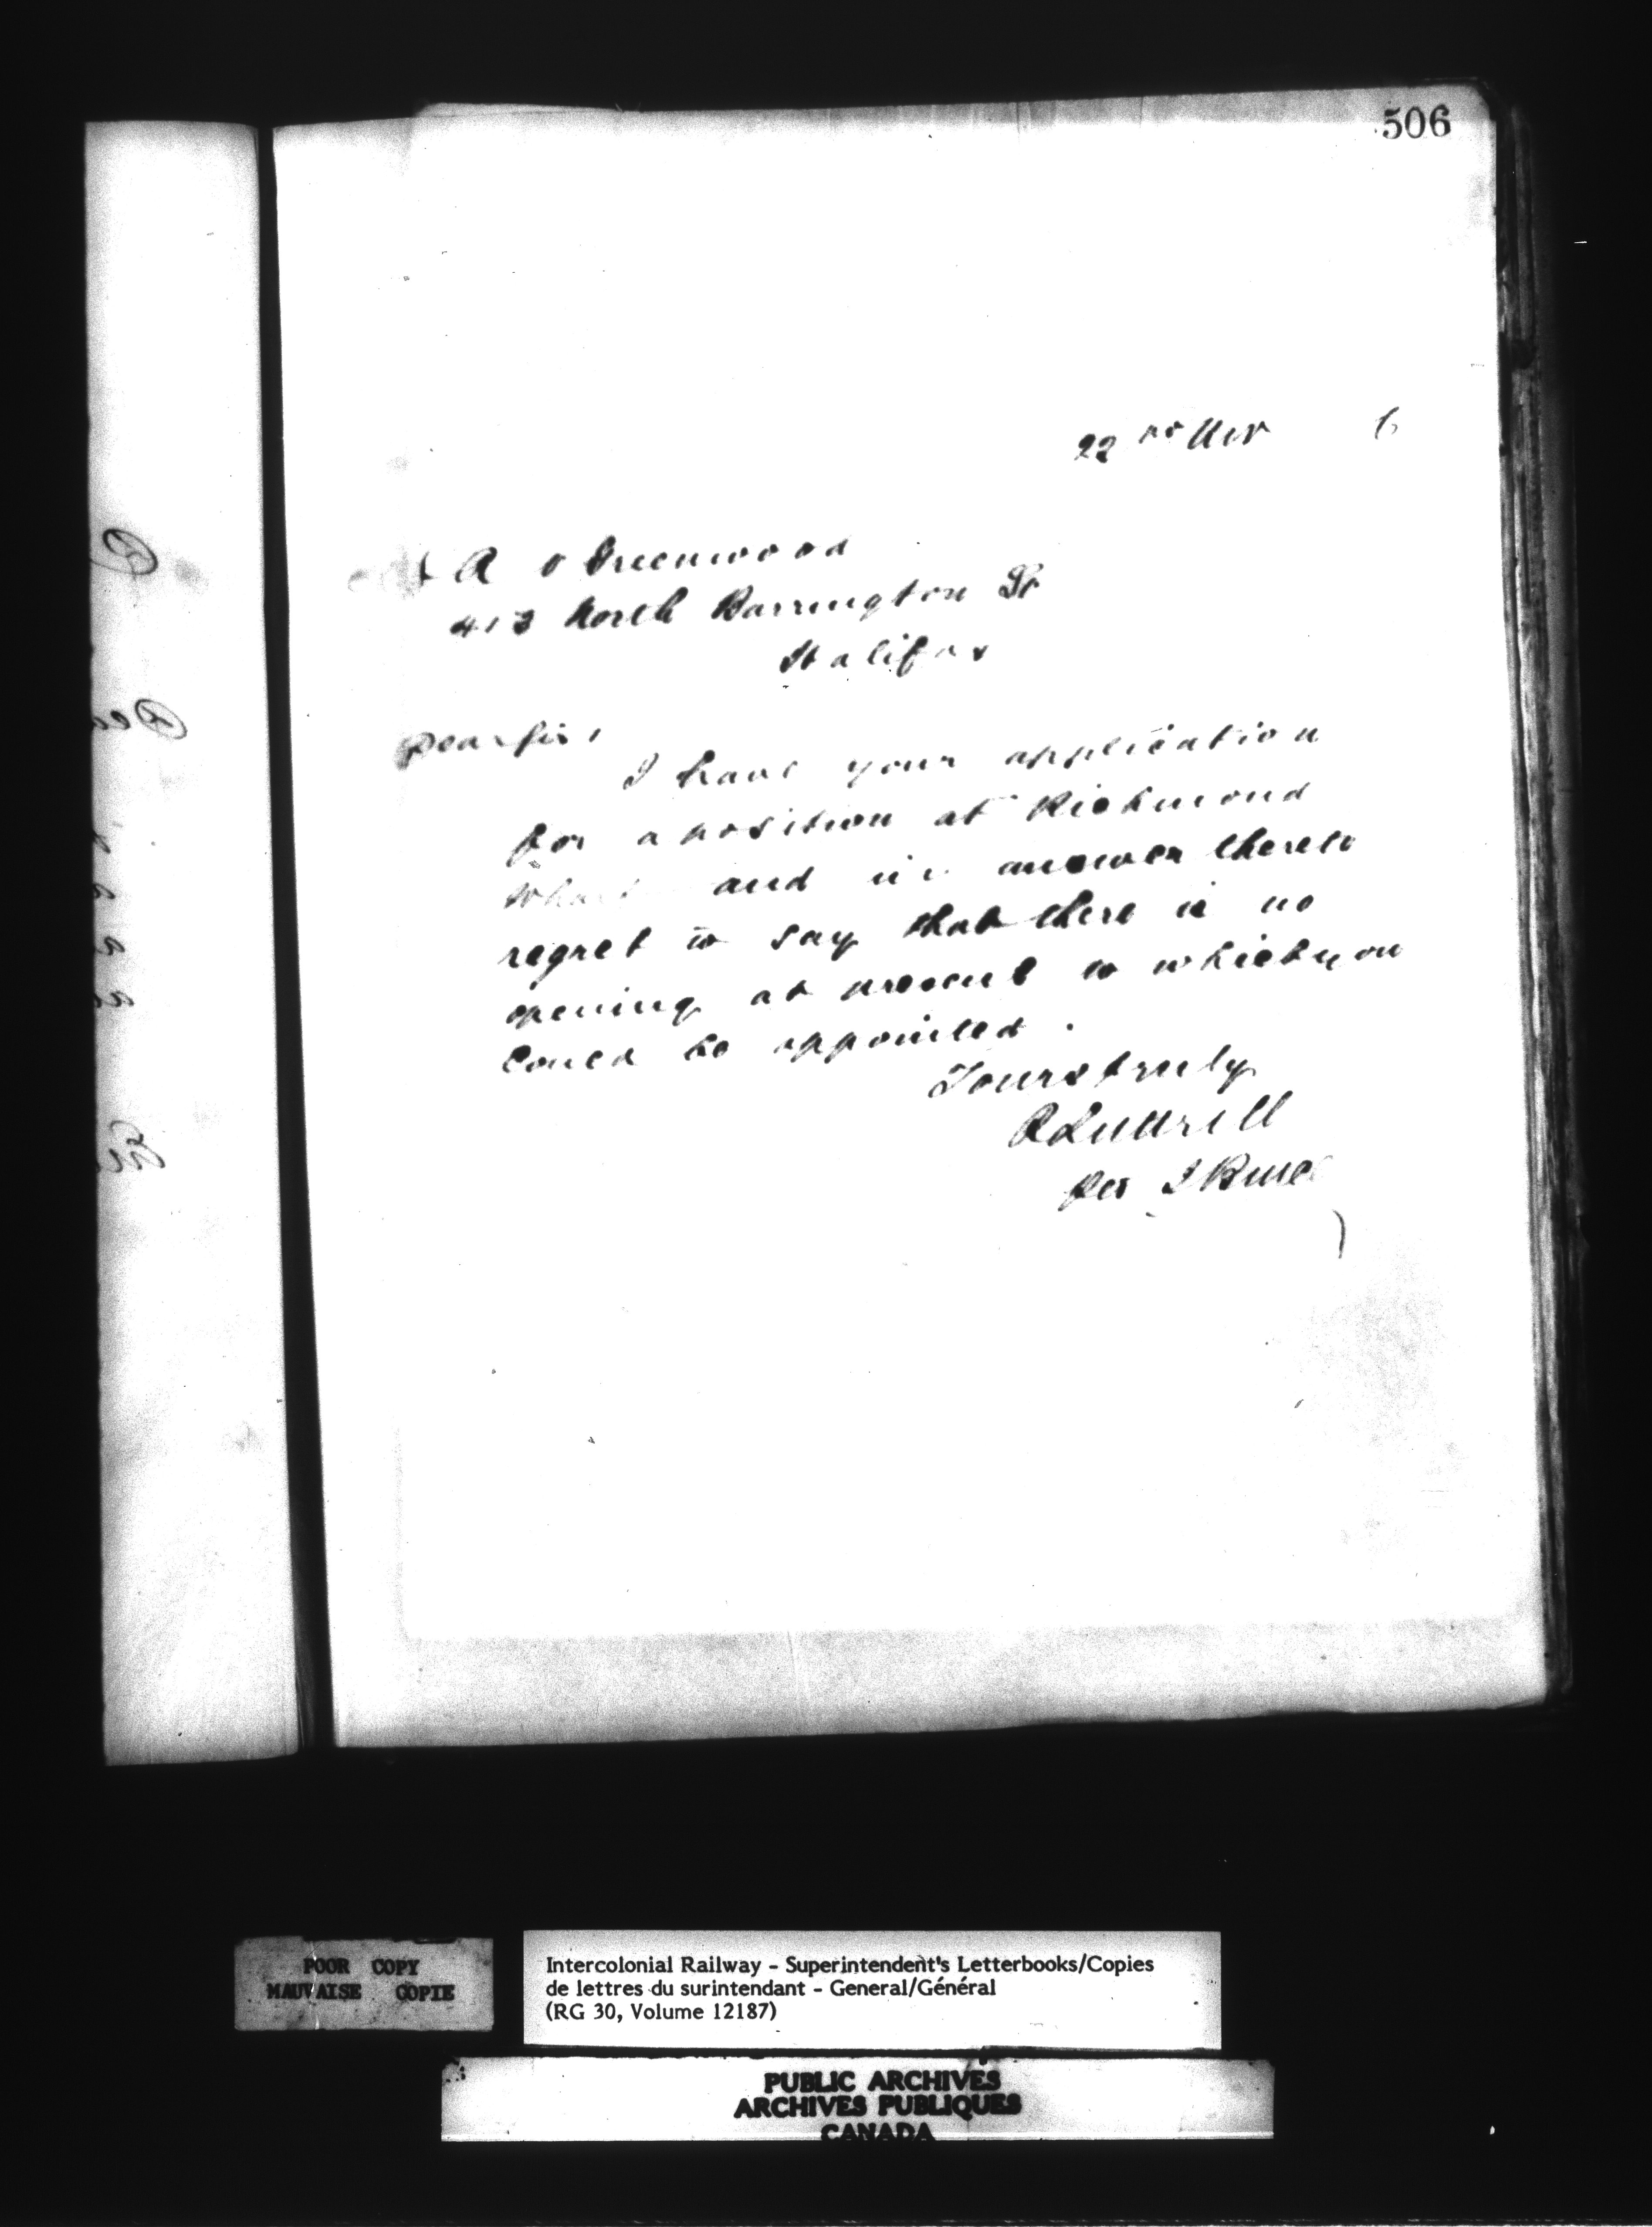 506
22nd Nov 6
A O Greenwood
413 North Barrington St
Halifax
Dear Sir,
I have your application
for a position at Richmond
Wharf and in answer thereto
regret to say that there is no
opening at present to which you
could be appointed.
Yours truly
R Luttrell
per
POOR COPY
MAUVAISE COPIE
Intercolonial Railway - Superintendent's Letterbooks/Copies
de lettres du surintendant - General/Général
(RG 30, Volume 12187)
PUBLIC ARCHIVES
ARCHIVES PUBLIQUES
CANADA